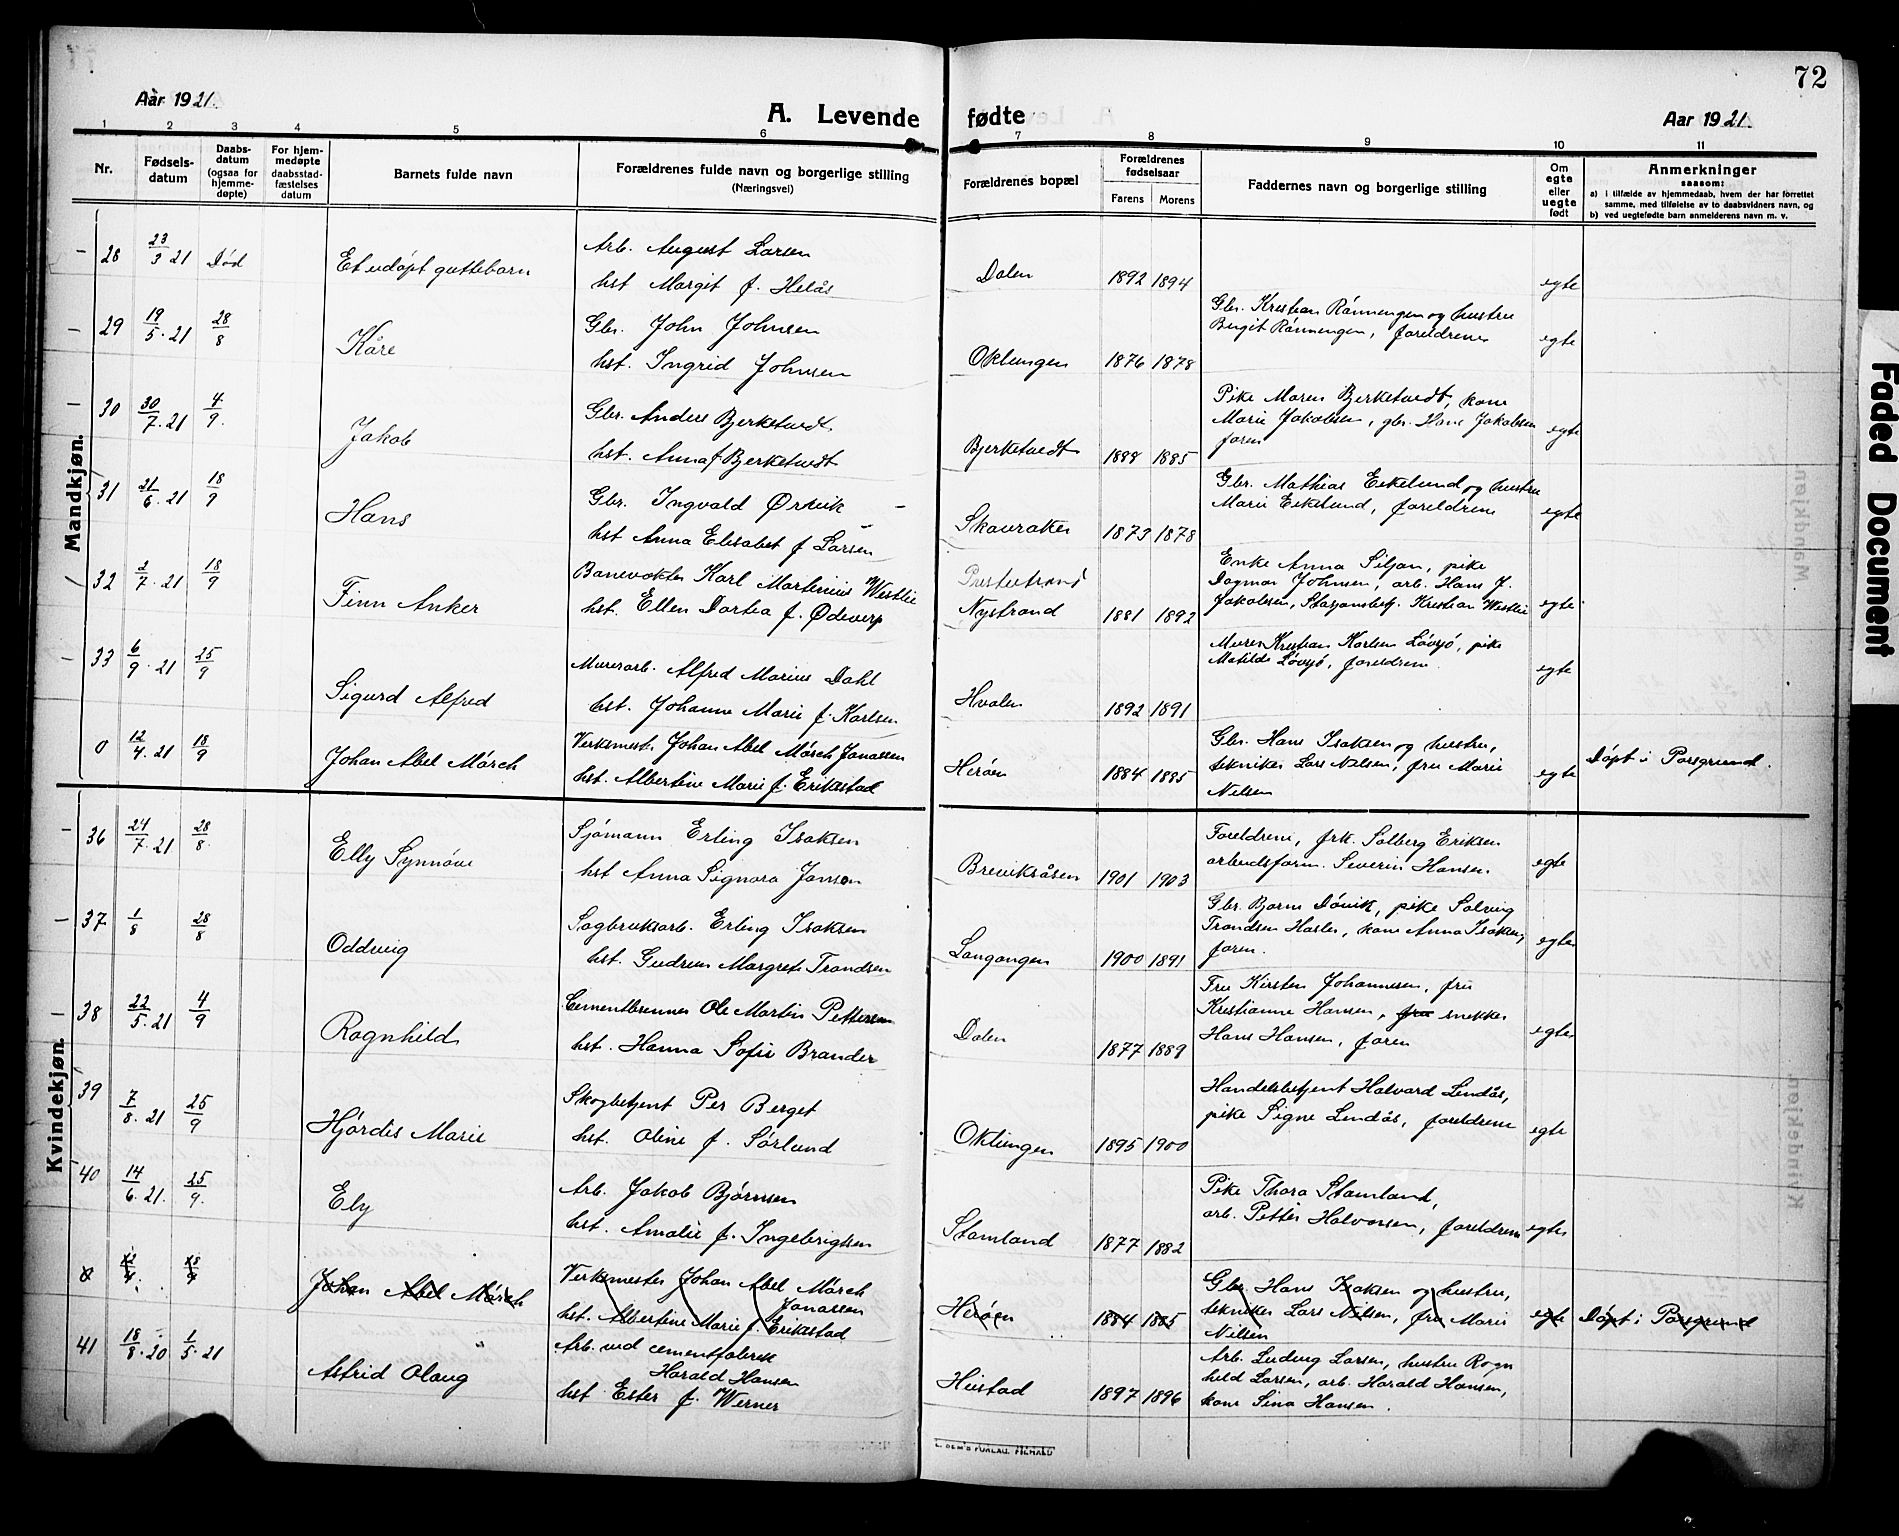 72
Aar 1921.
A. Levende fødte
Aar 1921.
1 2 3 4 5 6 7 8 9 10 11
Nr.
Fødsels-
datum
Daabs-
datum
(ogsaa for
hjemme-
døpte)
For hjem-
medøpte
daabsstad-
fæstelses
datum
Barnets fulde navn
Forældrenes fulde navn og borgerlige stilling
(Næringsvei)
Forældrenes bopæl
Forældrenes
fødselsaar
Farens Morens
Faddernes navn og borgerlige stilling
Om
egte
eller
uegte
født
Anmerkninger
saasom:
a) i tilfælde av hjemmedaab, hvem der har forrettet
samme, med tilføielse av to daabsvidners navn, og
b) ved uegtefødte barn anmelderens navn m. v.
Mandkjøn.
28 23/3 21 Død Et udøpt guttebarn
Arb. August Larsen
hst Margit f. Helås
Dalen 1892 1894 egte
29 19/5. 21 28/8 Kåre
Gbr. John Johnsen
hst. Ingrid Johnsen
Oklungen 1876 1878
Gbr. Kristian Rønningen og hustru
Birgit Rønningen, foreldrene
egte
30 30/7. 21 4/9. Jakob
Gbr. Anders Bjerketvedt
hst. Anna f Bjerketvedt
Bjerketvedt 1888 1885
Pike Maren Bjerketvedt, kone
Marie Jakobsen, gbr. Hans Jakobsen
faren
egte
31 21/6. 21 18/9 Hans
Gbr. Ingvald Ørvik
hst Anna Elisabet f Larsen
Skavraker 1873 1878
Gbr. Mathias Eikelund og hustru
Marie Eikelund, foreldrene
egte
32 2/7. 21 18/9 Finn Anker
Banevokter Karl Martinius Westlie
hst. Ellen Dortea f. Ødeverp
Prestestrand
Nystrand 1881 1892
Enke Anna Siljan, pike
Dagmar Johnsen, arb. Hans J.
Jakobsen, Stasjonsbetj. Kristian Westlie
egte
33 6/9. 21 25/9 Sigurd Alfred
Murerarb. Alfred Marius Dahl
hst. Johanne Marie f. Karlsen
Hvalen 1892 1891
Murer Kristian Karlsen Løvsjø, pike
Matilde Løvsjø, foreldrene.
egte
0 12/4. 21 18/9 Johan Abel Mørch
Verksmest. Johan Abel Mørch Jonassen
hst. Albertine Marie f. Erikstad
Herøen 1884 1885
Gbr. Hans Isaksen og hustru,
tekniker Lars Nilsen, fru Marie
Nilsen
egte Døpt i Porsgrund.
Kvindekjøn.
36 24/7. 21 28/8 Elly Synnøve
Sjømann Erling Isaksen
hst Anna Signora Jansen
Breviksåsen 1901 1903
Foreldrene, frk. Solberg Eriksen
arbeidsform. Severin Hansen.
egte
37 1/8 28/8 Oddveig
Sagbruksarb. Erling Isaksen
hst. Gudrun Margrete Trondsen
Langangen 1900 1891
Gbr. Bjarne Døvik, pike Solveig
Trondsen Hasler, kone Anna Isaksen,
faren.
egte
38 22/5. 21 4/9 Ragnhild
Cementbrenner Ole Martin Pettersen
hst. Hanna Sofie Brander
Dalen 1877 1889
Fru Kirsten Johannesen, fru
Kristianne Hansen, fru snekker
Hans Hansen, faren
egte
39 7/8. 21 25/9 Hjørdis Marie
Skogbetjent Per Berget
hst. Oline f. Sørlund
Oklungen 1895 1900
Handelsbetjent Halvard Lindås,
pike Signe Lindås, foreldrene
egte
40 14/6. 21. 25/9. Ely
Arb. Jakob Bjørnsen
hst. Amalie f. Ingebrigtsen
Stamland 1877 1882
Pike Thora Stamland,
arb. Petter Halvorsen, foreldrene
egte
0 12/4. 18/9 Johan Abel Mørch
Verksmester Johan Abel Mørch
Jonassen
hst. Albertine Marie f. Erikstad
Herøen 1884 1885
Gbr. Hans Isaksen og hustru,
tekniker Lars Nilsen, fru Marie
Nilsen
egte Døpt i Porsgrund
41 18/8. 20 1/5. 21 Astrid Olaug
Arb. ved cementfabrik
Harald Hansen
hst. Ester f. Werner
Heistad 1897 1896
Arb. Ludvig Larsen, hustru Ragn
hild Larsen, arb. Harald Hansen,
kone Sina Hansen.
Faded Document